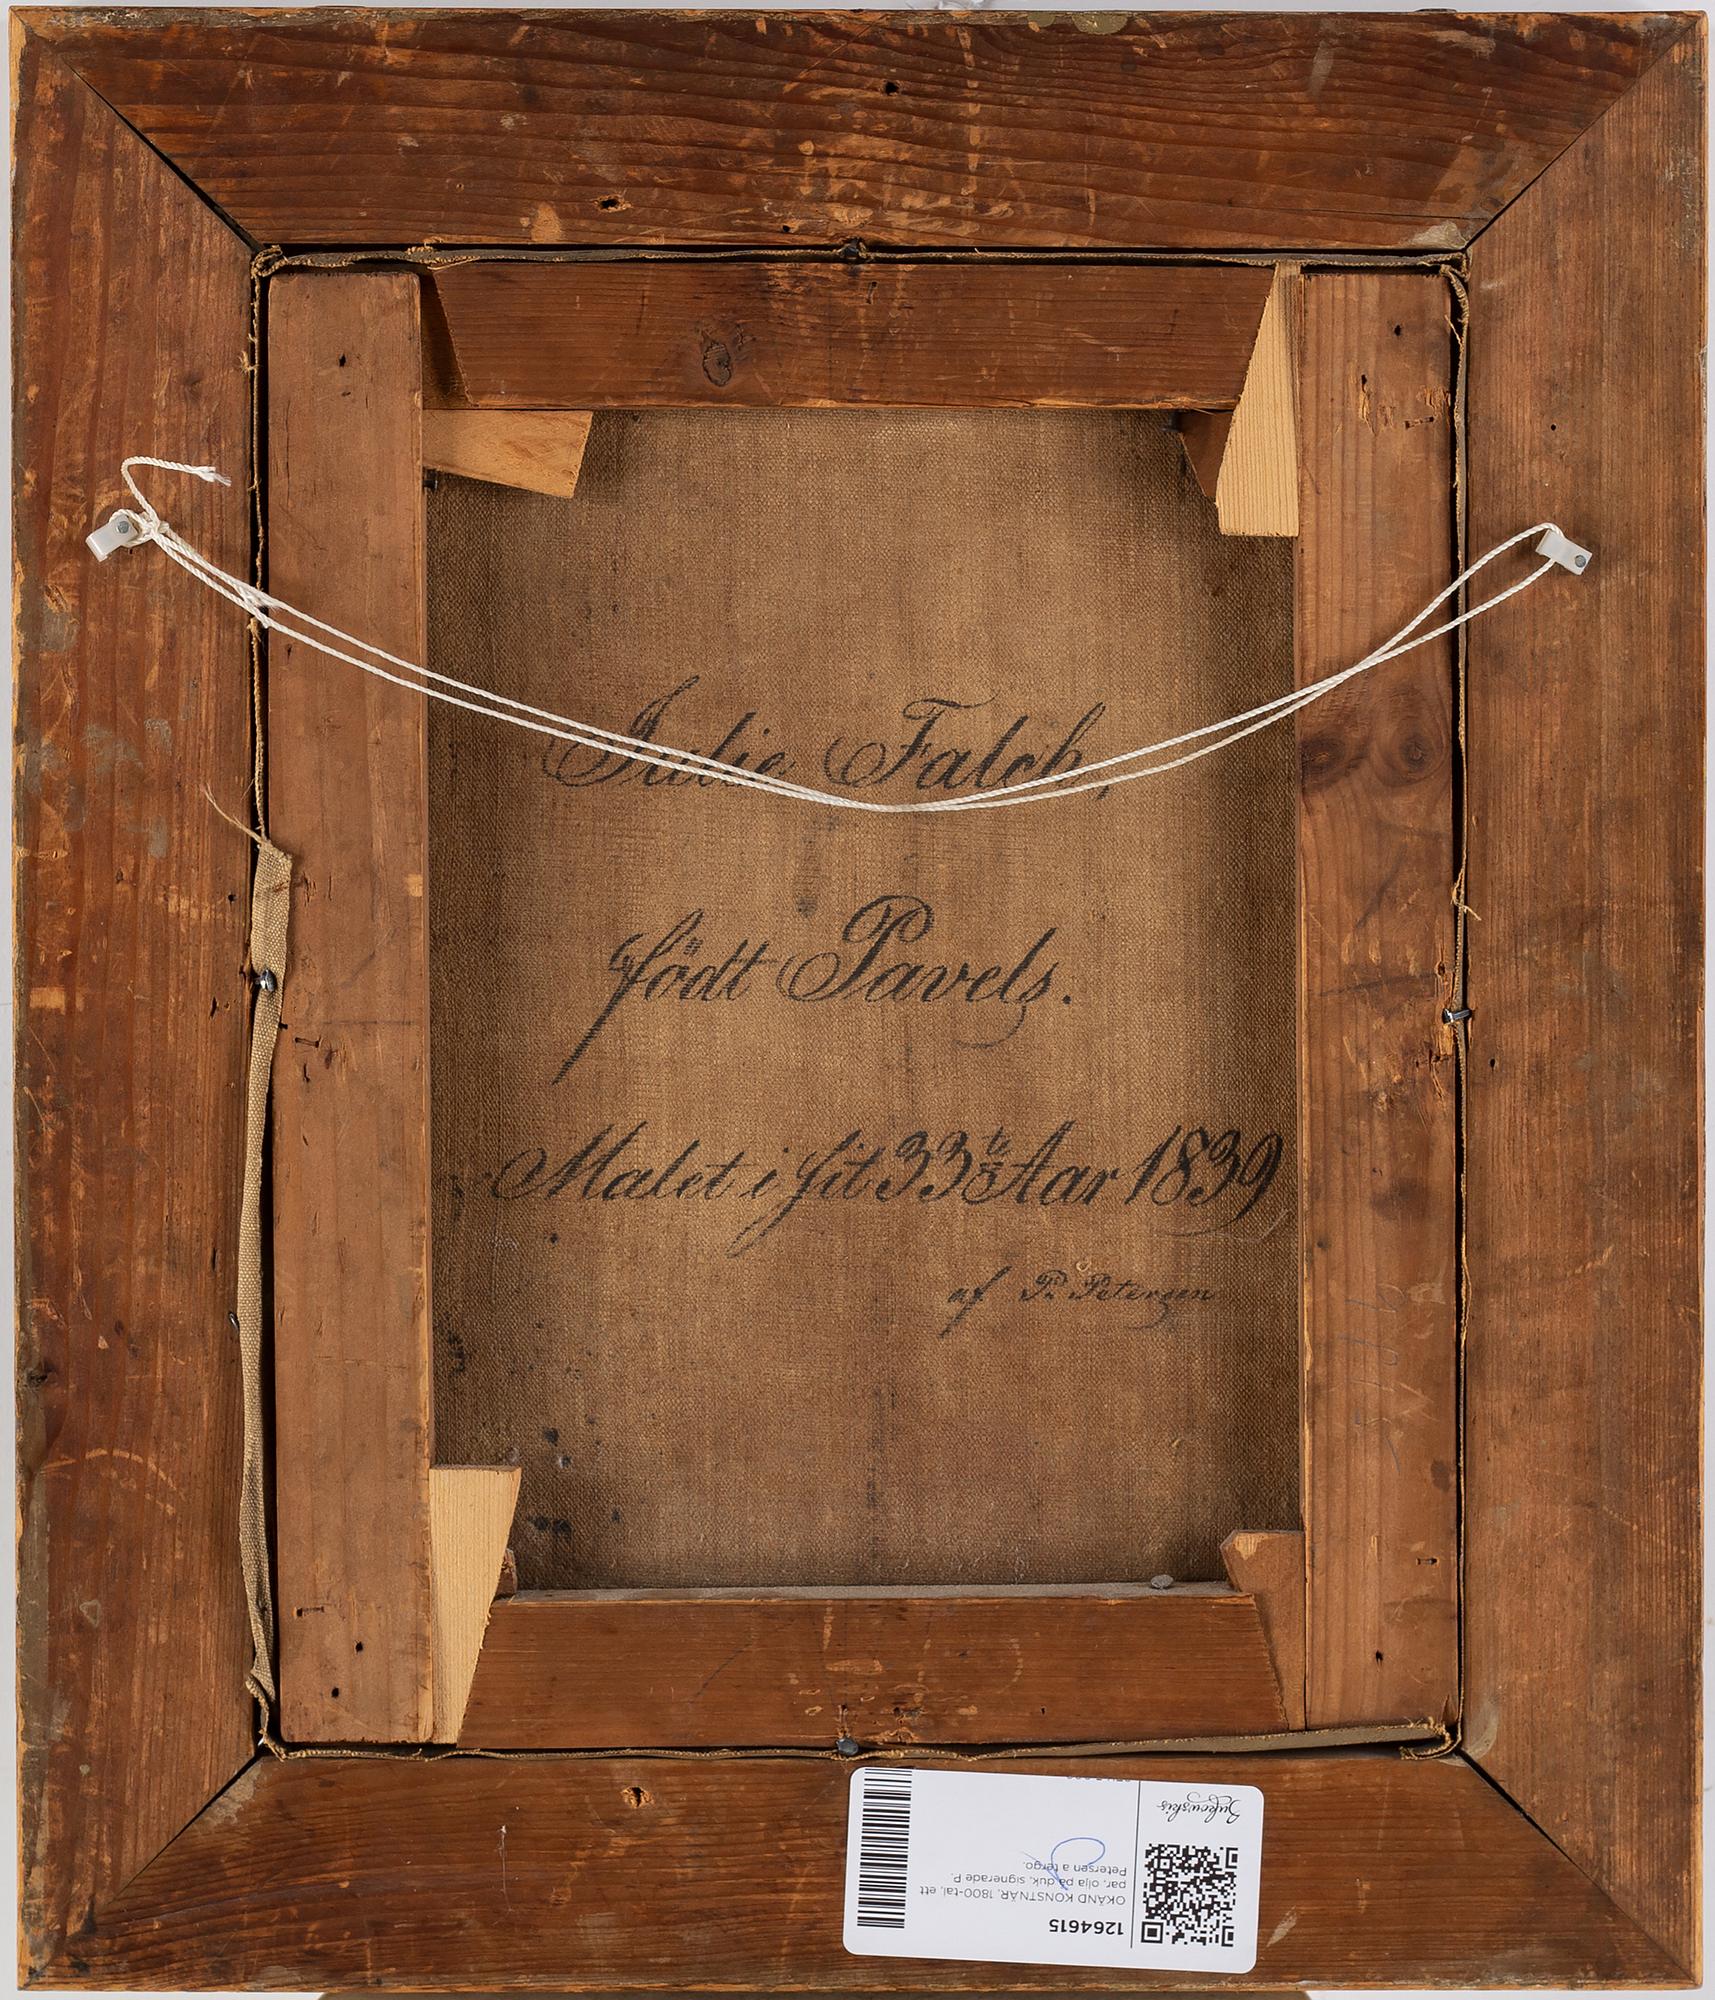 Julie Falch,
födt Pavels.
Malet i sit 33te Aar 1839
af P. Petersen
1264615
OKÄND KONSTNÄR, 1800-tal, ett
par, olja på duk, signerade P.
Petersen a tergo.
Bukowskis